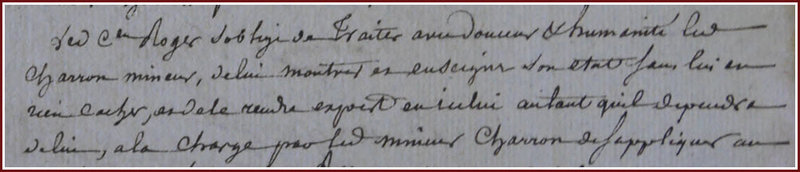 Led Cen Roger s'oblige de Traiter avec douceur & humanité led
Charron mineur, de lui montrer et enseigner son etat sans lui en
rien cacher, et de le rendre expert en icelui autant qu'il dependra
de lui, a la charge par led mineur Charron de s'appliquer au